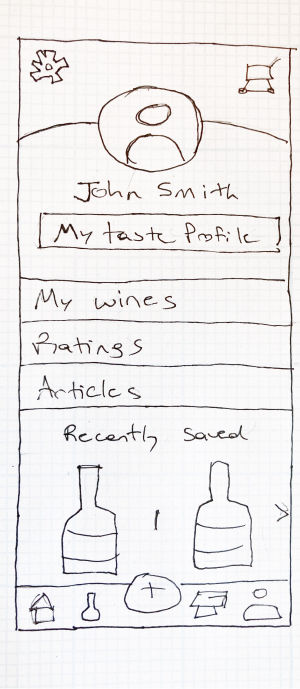 John Smith
My taste Profile
My wines
Ratings
Articles
Recently saved